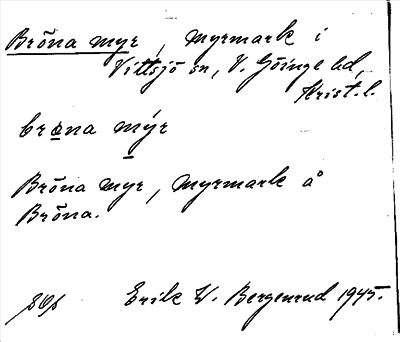 Bröna myr, myrmark i
Vittsjö sn, V. Göinge hd,
Krist. l.
brøna mýr
Bröna myr, myrmark å
Bröna.
Erik W. Bergenrud 1945.